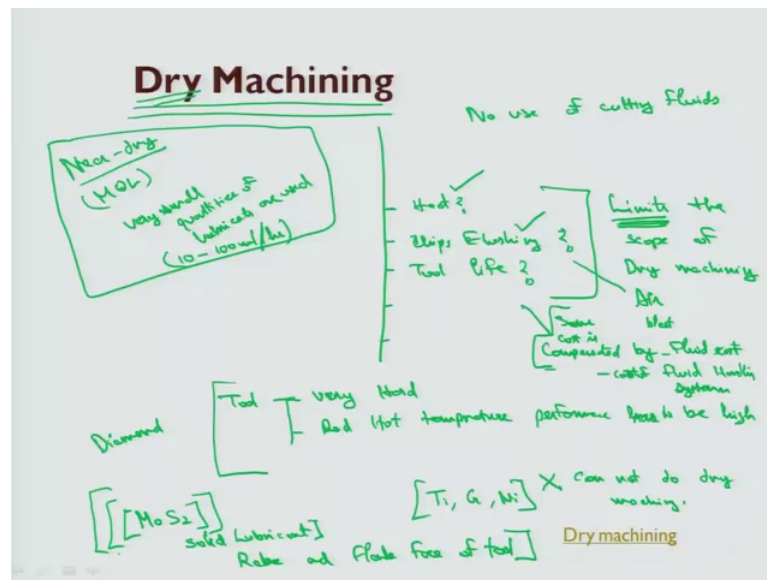 Dry Machining
No use of cutting fluids
Near-dry
(MQL)
very small
quantities of
lubricants are used
(10-100 ml/hr)
Heat ?
Chips Flushing ?
Tool life ?
Limits the
scope of
Dry machining
Air
blast
Some
cost is
Compensated by - Fluid cost
- cost of Fluid Handling
System
Diamond
Tool
very Hard
Red Hot temprature performance has to be high
[[[MoS2]]
solid Lubricant]
Rake and Flank Face of tool]
[Ti, Cr, Ni] X can not do dry
machining.
Dry machining